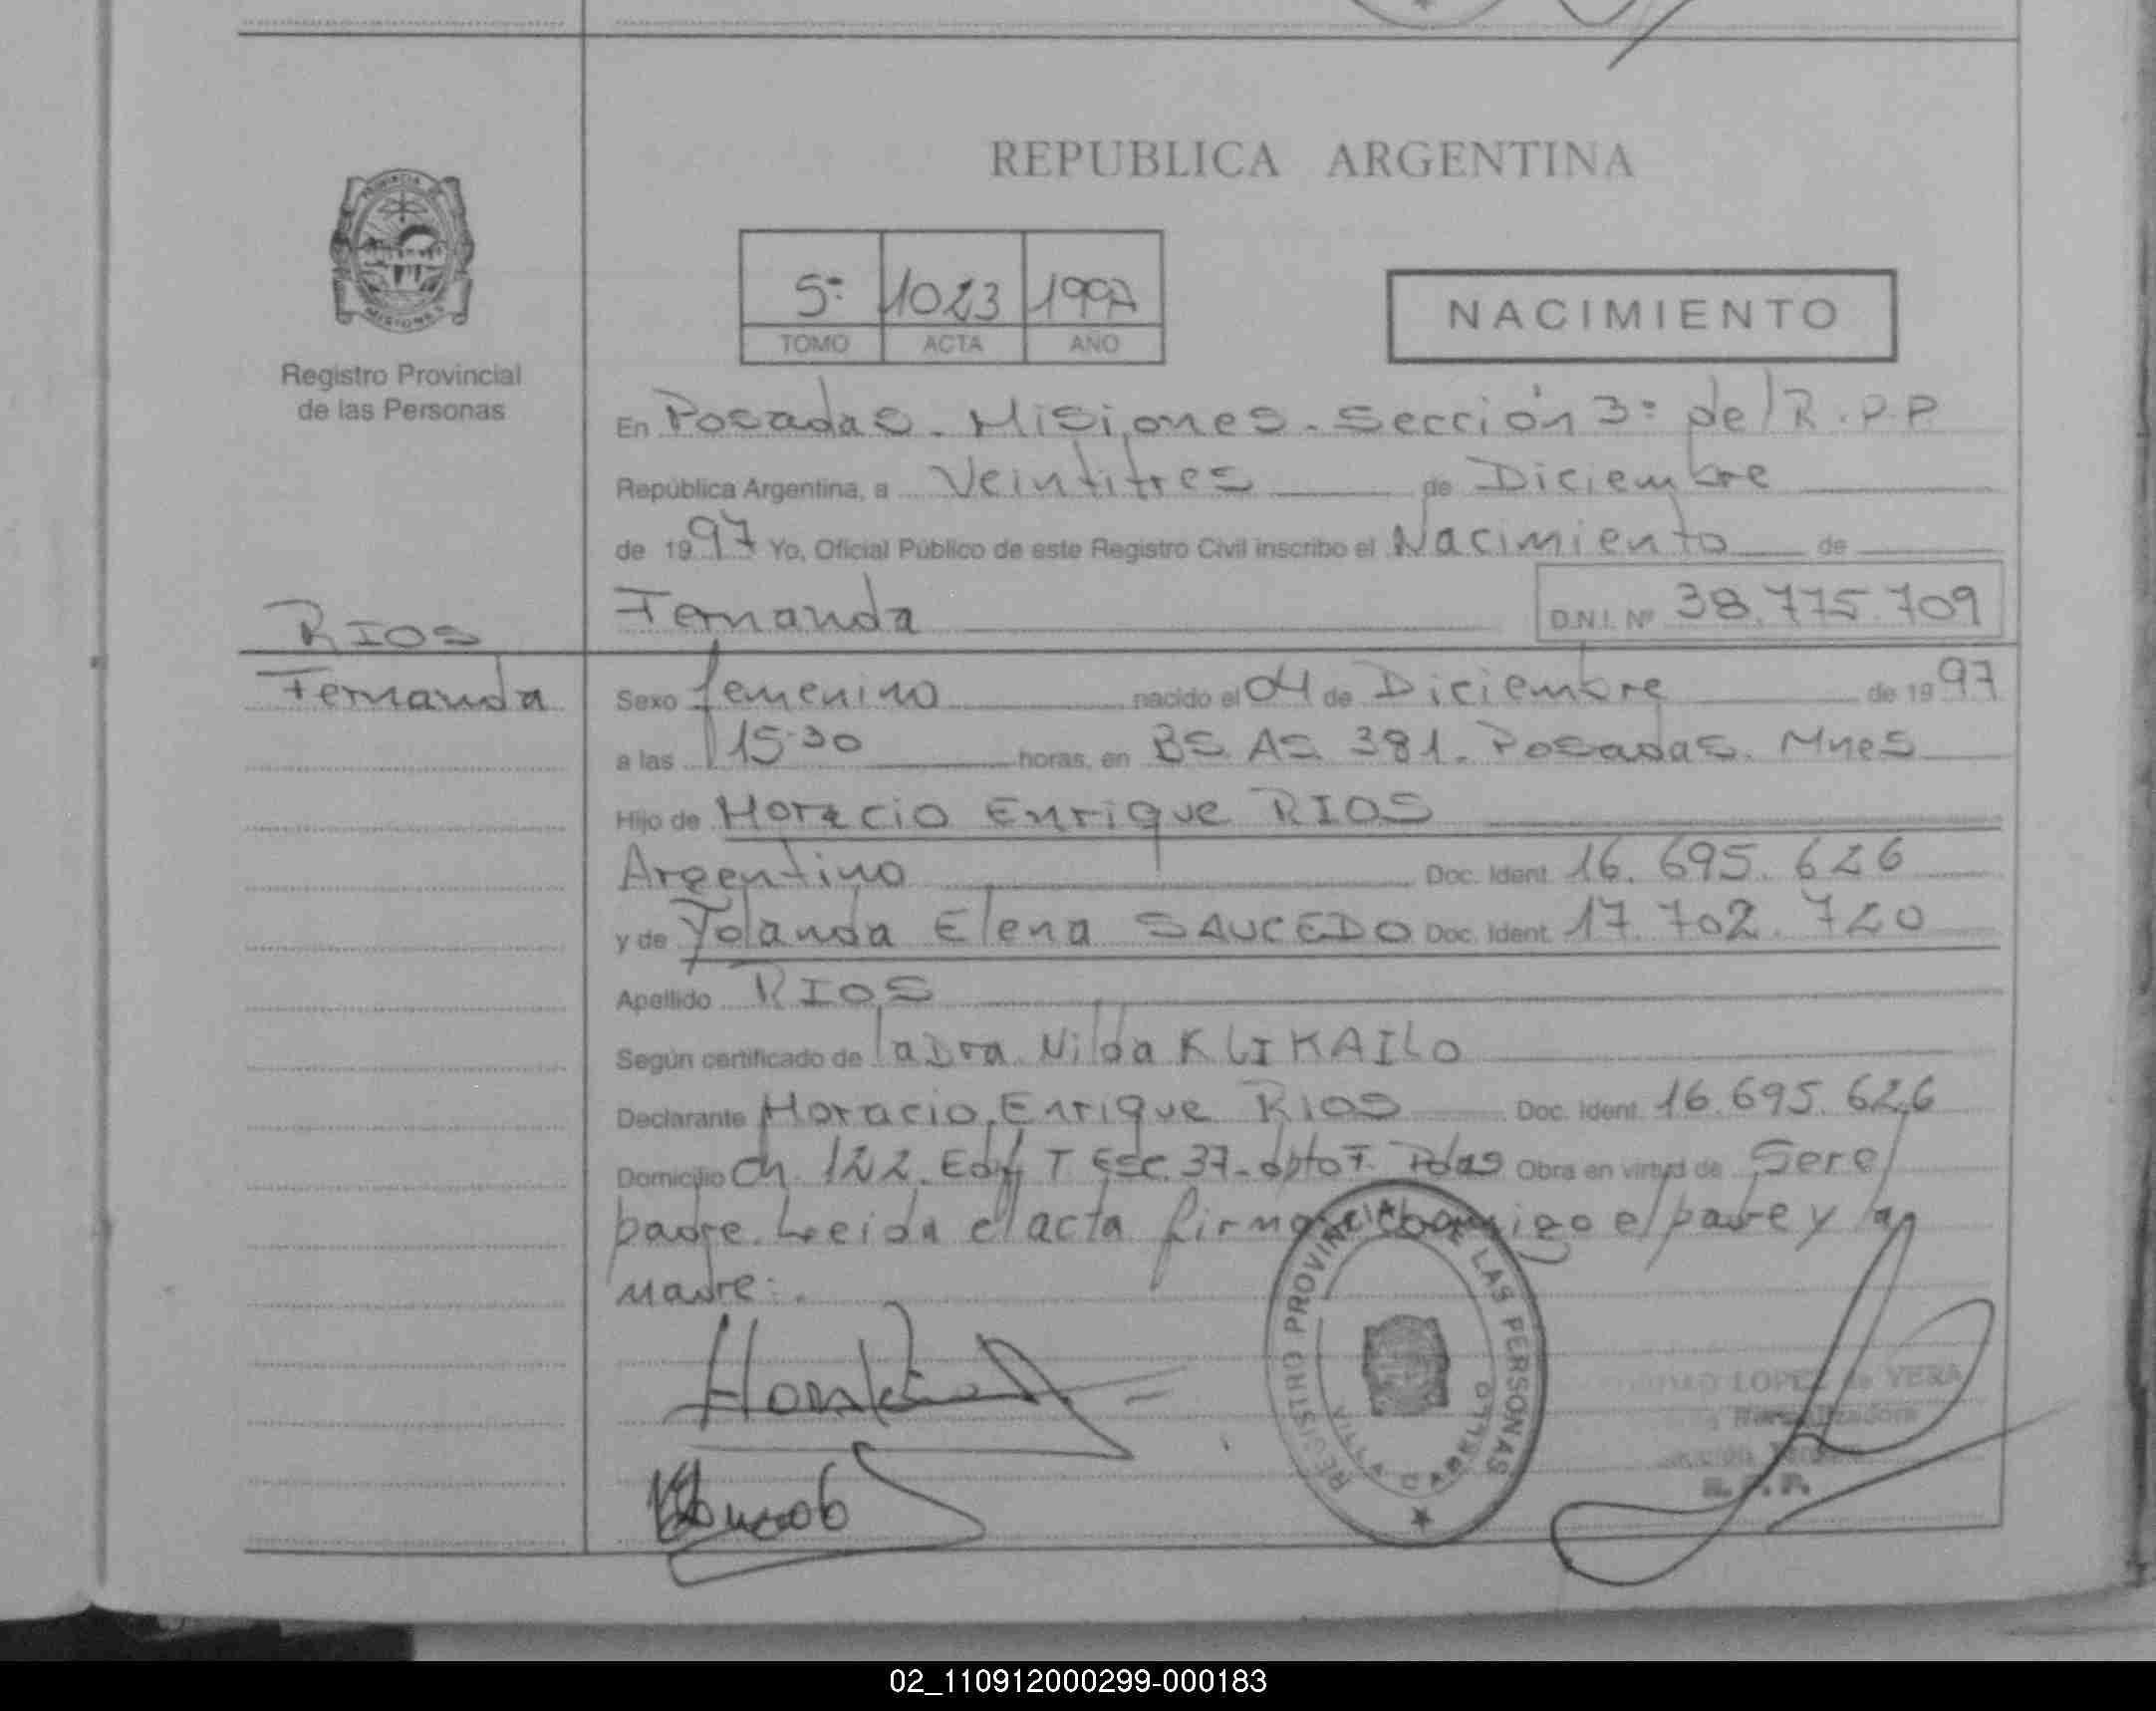 REPUBLICA ARGENTINA
PROVINCIA DE
MISIONES
Registro Provincial
de las Personas
5º 1023 1997
TOMO ACTA AÑO
NACIMIENTO
En Posadas - Misiones - Sección 3º del R.P.P
República Argentina, a Veintitres de Diciembre
de 1997 Yo, Oficial Público de este Registro Civil inscribo el Nacimiento de
Fernanda D.N.I. Nº 38.775.709
RIOS
Fernanda
Sexo femenino nacido el 04 de Diciembre de 1997
a las 15.30 horas, en BS AS 381. Posadas. Mnes
Hijo de Horacio Enrique RIOS
Argentino Doc. Ident. 16.695.626
y de Yolanda Elena SAUCEDO Doc. Ident. 17.702.720
Apellido RIOS
Según certificado de la Dra Nilda KLIKAILO
Declarante Horacio Enrique RIOS Doc. Ident. 16.695.626
Domicilio Ch. 122. Edif T Esc. 37- dpto F. Pdas Obra en virtud de Ser el
padre. Leida el acta firman conmigo el padre y la
madre:.
REGISTRO PROVINCIAL DE LAS PERSONAS
VILLA CABELLO
LOPEZ de VERA
R. P. P.
02_110912000299-000183